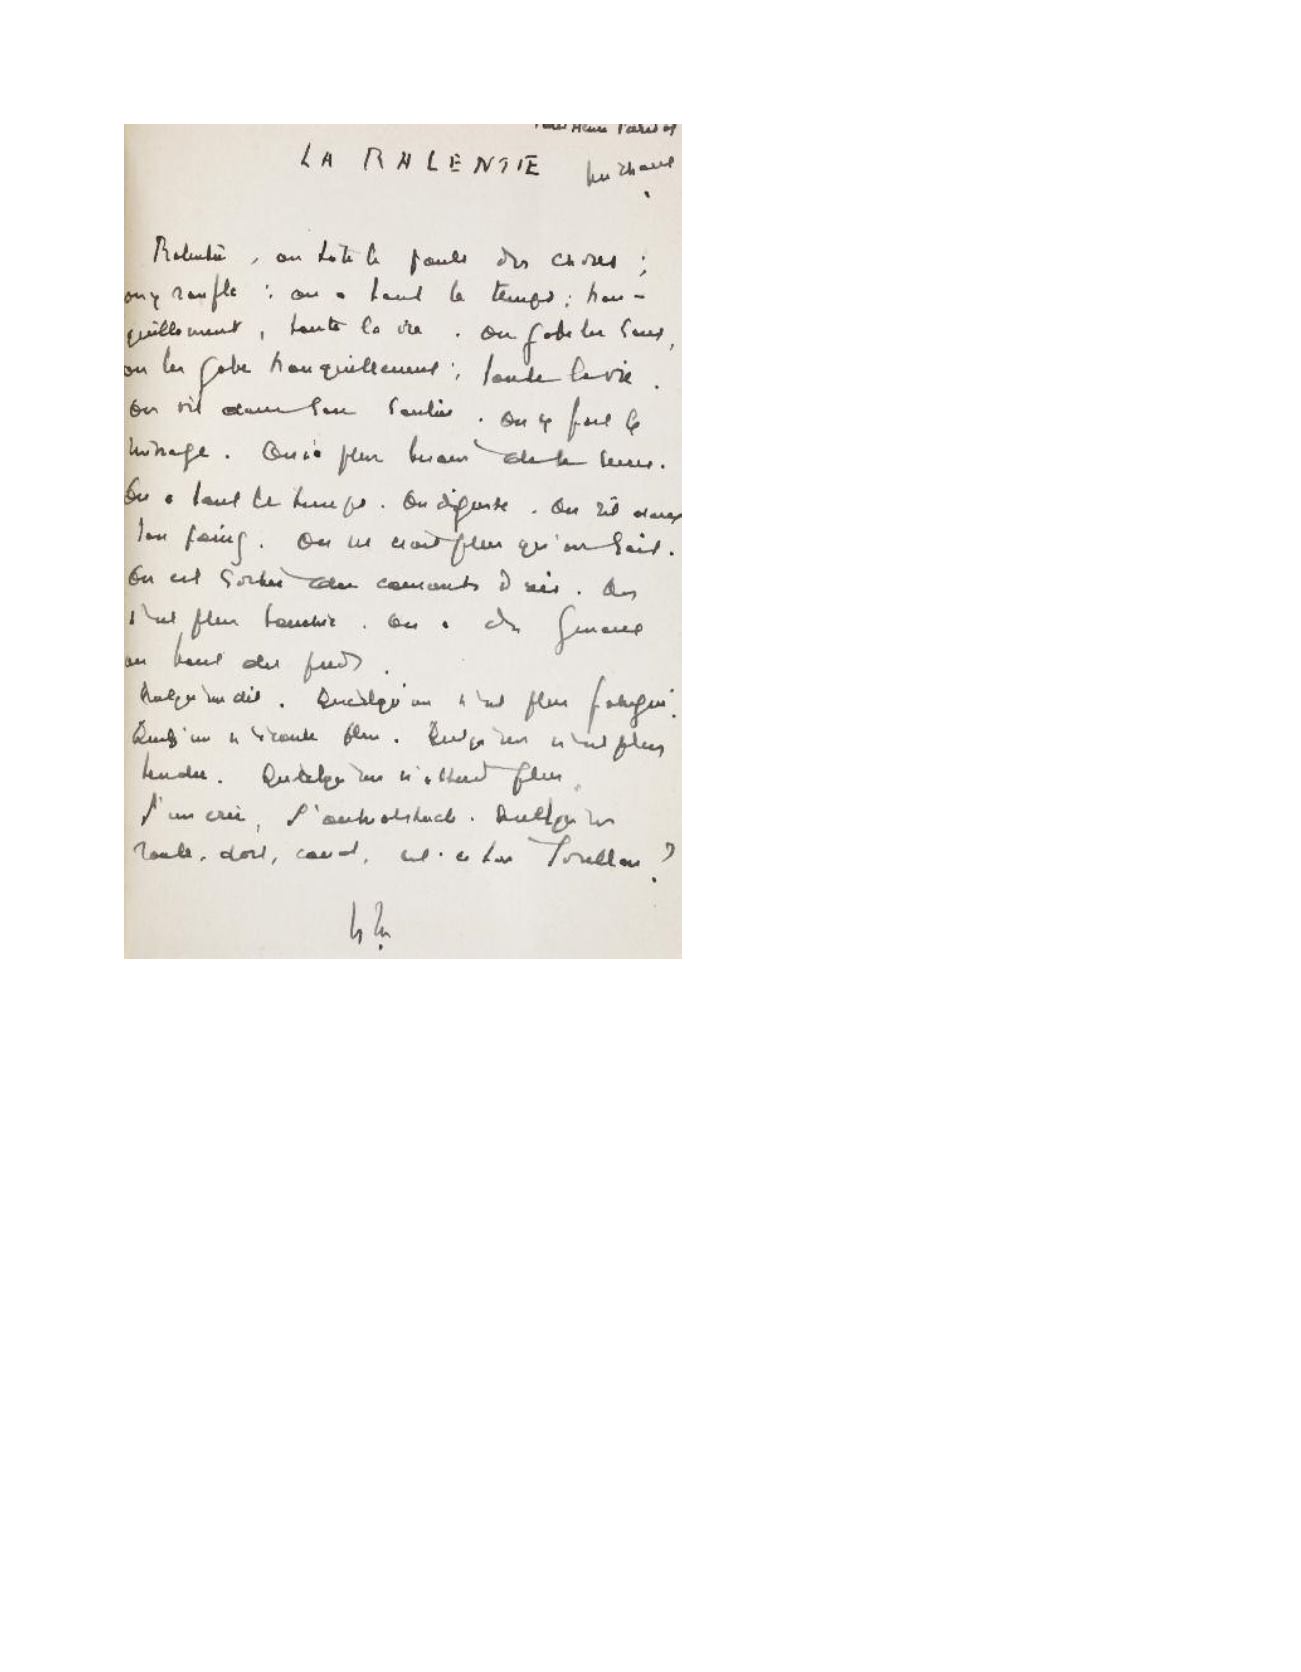 Pour Henri Parisot
LA RALENTIE
Michaux
Ralentie, on tâte le pouls des choses ;
on y ronfle ; on a tout le temps ; tran-
quillement, toute la vie. On gobe les sons,
on les gobe tranquillement ; toute la vie.
On vit dans son soulier. On y fait le
ménage. On n'a plus besoin de se serrer.
On a tout le temps. On déguste. On rit dans
son poing. On ne croit plus qu'on sait.
On est sortie des
n'est plus On a des
au bout des pieds.
Quelqu'un dit. Quelqu'un n'est plus fatigué.
Quelqu'un n'écoute plus. Quelqu'un n'est plus
tendu. Quelqu'un n'attend plus.
L'un crie, l'autre obstacle. Quelqu'un
roule, dort, coud, est-ce toi Lorellou ?